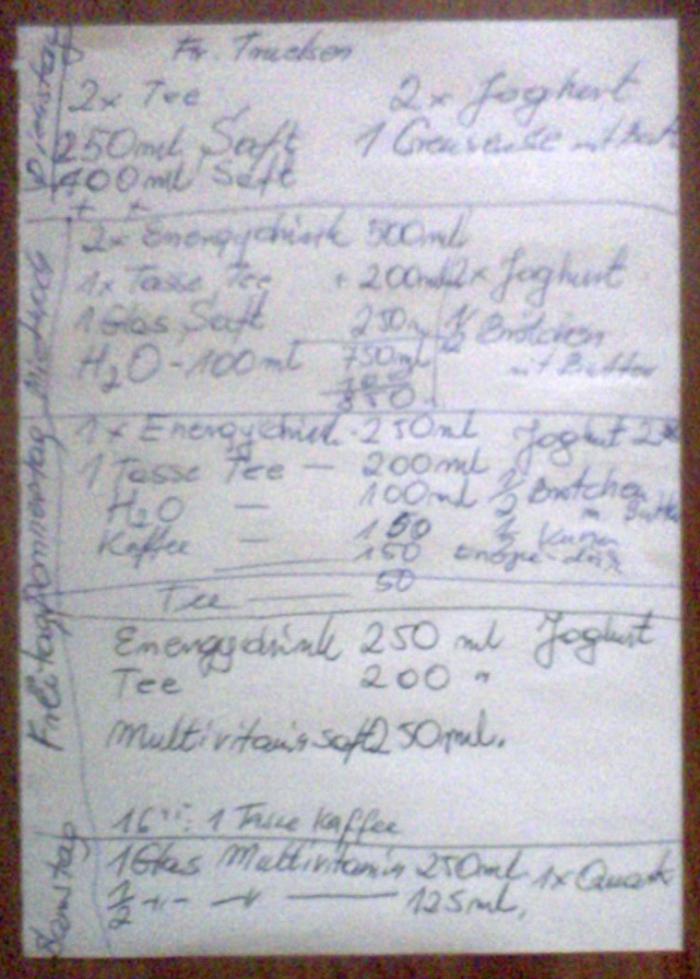 Dienstag
Fr.
2x Tee 2x Joghurt
250ml Saft 1
400ml Saft
+ +
Mittwoch
2x Energydrink 500ml
1x Tasse Tee + 200ml 2x Joghurt
1 Glas Saft 250 1/2 Brötchen
H2O - 100ml 750ml mit Butter
100
850
Donnerstag
1x Energydrink - 250ml Joghurt
1 Tasse Tee — 200ml 1/2 Brötchen
H2O — 100ml
Kaffee — 150 1/2
150
Tee — 50
Freitag
Energydrink 250 ml Joghurt
Tee 200 "
Multivitaminsaft 250ml.
16 : 1 Tasse Kaffee
Samstag
1 Glas Multivitamin 250ml. 1x Quark
1/2 -"- -"- — 125ml,